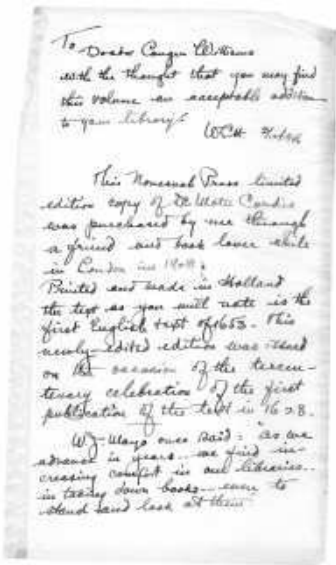 To
Doctor Conger Williams
with the thought that you may find
this volume an acceptable addition
to your library.
WCH
This Nonesuch Press limited
edition copy of De Motu Cordis
was purchased by me through
a friend and book lover while
in London in
Printed and made in Holland
the text as you will note is the
first English text of 1653. This
newly-edited edition was issued
on the occasion of the tercen-
tenary celebration of the first
publication of the text in 1628.
W.J. Mayo once said: "as we
advance in years - we find in-
creasing comfort in our libraries..
in taking down books - even to
stand and look at them"